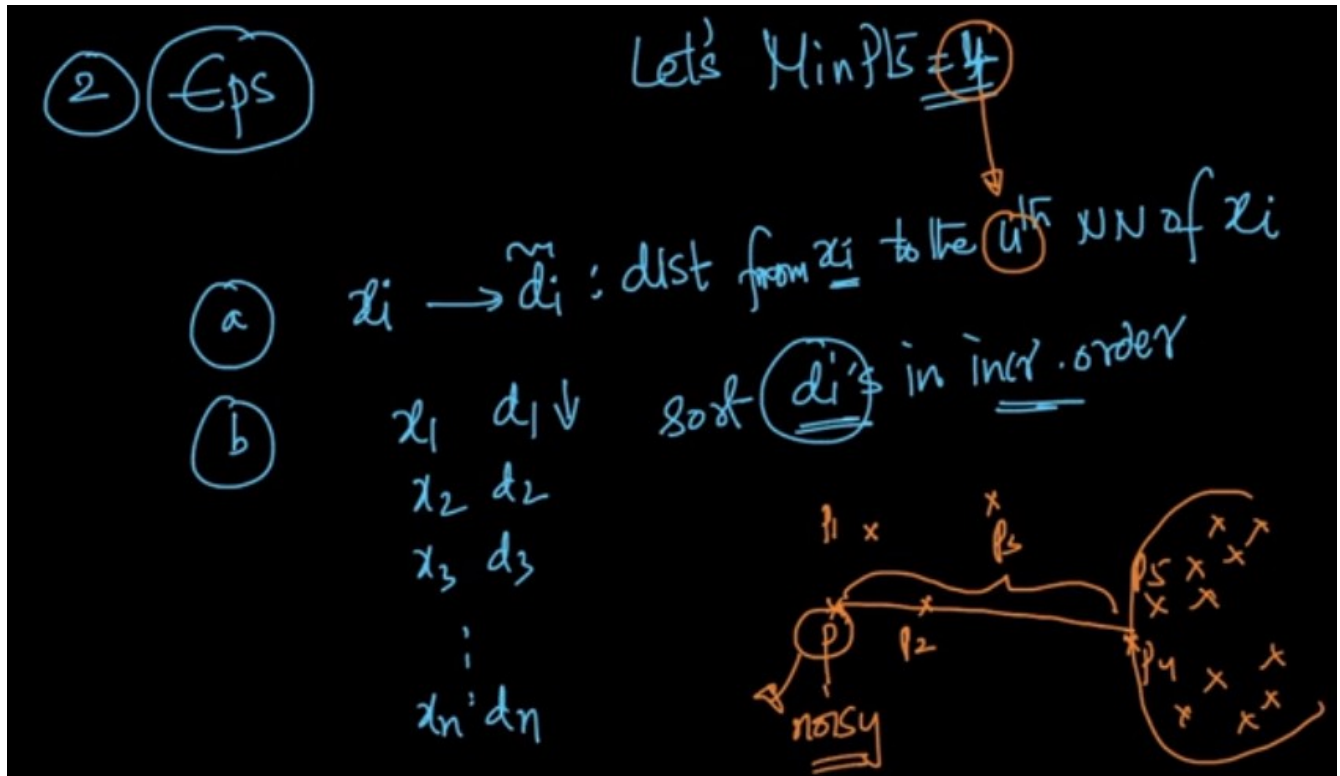 2 Eps
Let's MinPts = 4
a xi → di : dist from xi to the 4th NN of xi
b x1 d1 ↓ sort di's in incr. order
x2 d2
x3 d3
⋮
xn dn
P1
P3
P5
P
P2
P4
noisy